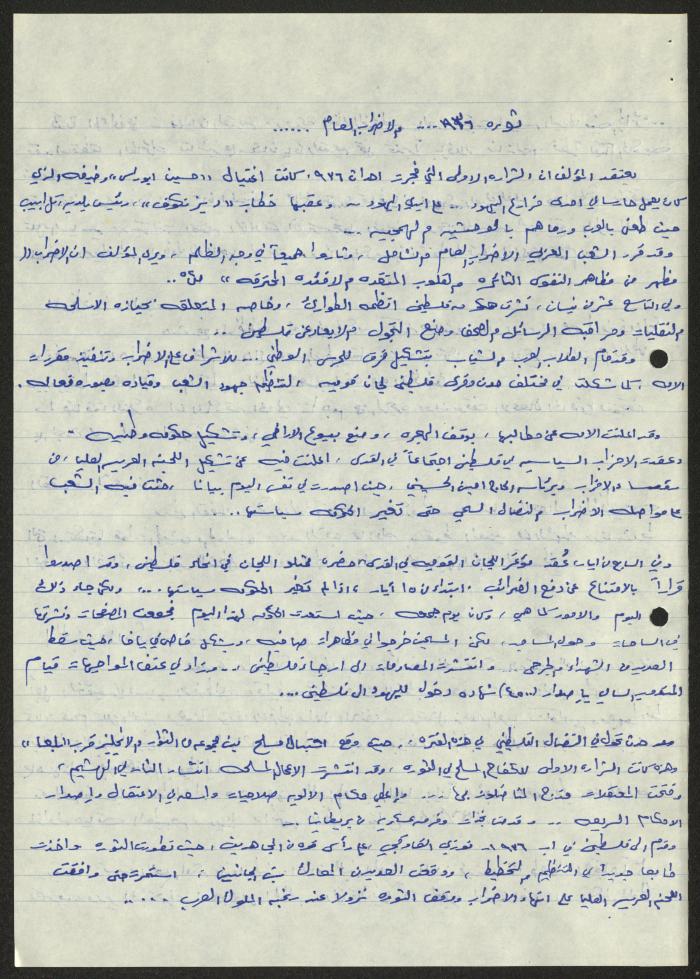 ثورة ١٩٣٦ .... والاضراب العام ......
يعتقد المؤلف ان الشرارة الاولى التي فجرت احداث ١٩٣٦ كانت اغتيال «حسين ابو راس» وظيفته الذي
كان يعمل حارسا في احدى مزارع اليهود ... على ايدي اليهود .. وعقبها خطاب « ديزنكوف » ، رئيس بلدية تل ابيب
حيث طعن بالعرب ورماهم بالوحشية والهمجية ...
وقد قرر الشعب العربي الاضراب العام والشامل ، وثاروا جميعاً في وجه الظلم ، ويرى المؤلف ان الاضراب «
مظهر من مظاهر النفوس الثائرة والقلوب المتقدة والافئدة المحترقة » ..
وفي التاسع عشر من نيسان ، نشرت حكومة فلسطين انظمة الطوارئ ، وخاصة المتعلقة بحيازة الاسلحة
والنقليات ومراقبة الرسائل والصحف ومنع التجول والابعاد عن فلسطين ...
وقد قام الطلاب العرب والشباب بتشكيل فرق للحرس الوطني .. للاشراف على الاضراب وتنفيذ مقررات
الامة ، كما شكلت في مختلف مدن وقرى فلسطين لجان قومية ، لتنظيم جهود الشعب وقيادة بصورة فعالة .
وقد اعلنت الامة عن مطالبها ، بوقف الهجرة ، ومنع بيوع الاراضي ، وتشكيل حكومة وطنية -
وعقدت الاحزاب السياسية في فلسطين اجتماعاً في القدس ، اعلنت فيه عن تشكيل اللجنة العربية العليا ، من
الاحزاب وبرئاسة الحاج امين الحسيني ، حيث اصدرت في نفس اليوم بيانا ، حثت فيه الشعب
على مواصلة الاضراب والنضال السلمي حتى تغير الحكومة سياستها ..
وفي السابع من ايار عُقد مؤتمر اللجان القومية في القدس حضره ممثلو اللجان في انحاء فلسطين ، وقد اصدروا
قراراً بالامتناع عن دفع الضرائب ، ابتداء من ١٥ ايار ، اذا لم تغير الحكومة سياستها ... ، ولكن جاء ذلك
اليوم والامور كما هي ، وكان يوم جمعة ، حيث استعدت الحكومة لهذا اليوم فجمعت المصفحات ونشرتها
في الساحات وحول المساجد ، لكن المسلمين خرجوا في مظاهرات صاخبة ، وبشكل خاص في يافا ، حيث سقط
العديد من الشهداء والجرحى . وانتشرت المصادمات الى ارجاء فلسطين ، .. وزاد في عنف المواجهات قيام
المندوب السامي باصدار (٤٥٠٠) شهادة دخول لليهود الى فلسطين ...
وقد حدث تحول في النضال الفلسطيني في هذه الفترة ، حيث وقع اشتباك مسلح بين مجموعة من الثوار والانجليز قرب «بلعا»
وهذه كانت الشرارة الاولى للكفاح المسلح في الثورة ، وقد انتشرت الاعمال المسلحة انتشار النار في الهشيم ،
وفتحت المعتقلات وزج المناضلون بها ... وأُعطي حكام الالوية صلاحيات واسعة في الاعتقال واصدار
الاحكام السريعة .. وقدمت نجدات وفرقة عسكرية من بريطانيا ..
وقدم الى فلسطين في اب ١٩٣٦ فوزي القاوقجي ، على رأس قوة من المجاهدين ، حيث تطورت الثورة واخذت
طابعا جديدا في التنظيم والتخطيط ، ووقعت العديد من المعارك بين الجانبين ، استمرت حتى وافقت
اللجنة العربية العليا على انهاء الاضراب ووقف الثورة نزولا عند رغبة الملوك العرب .....